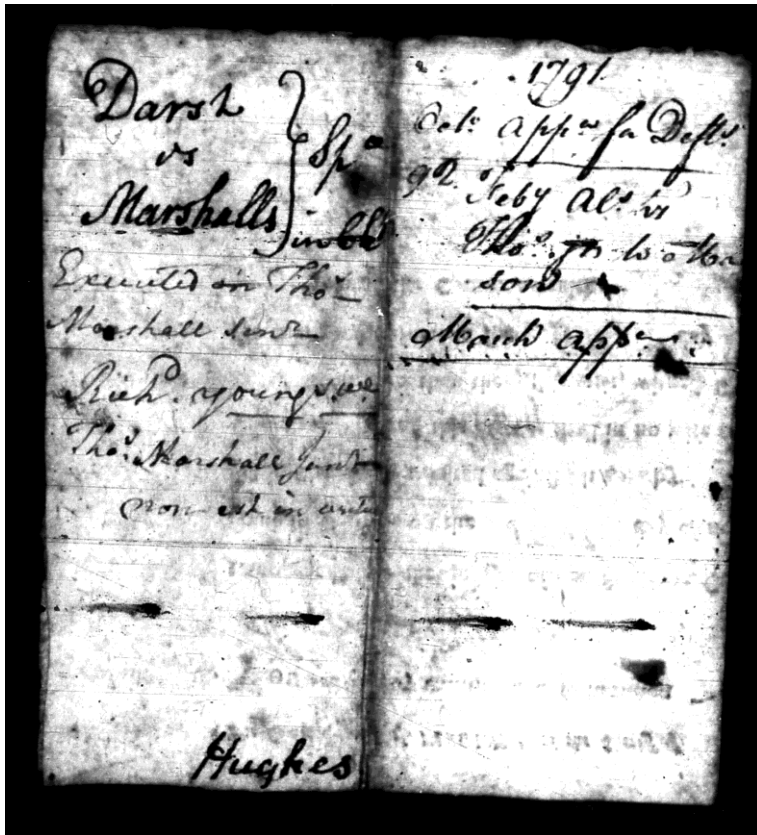 Darsh
vs
Marshalls
Spa
in debt
Executed on Thos.
Marshall senr
Richd. Young
Thos. Marshall Junr
non est in
Hughes
1791
Octr. appce for Defts.
92. Feby Als.
Thos. jr
son
March appce